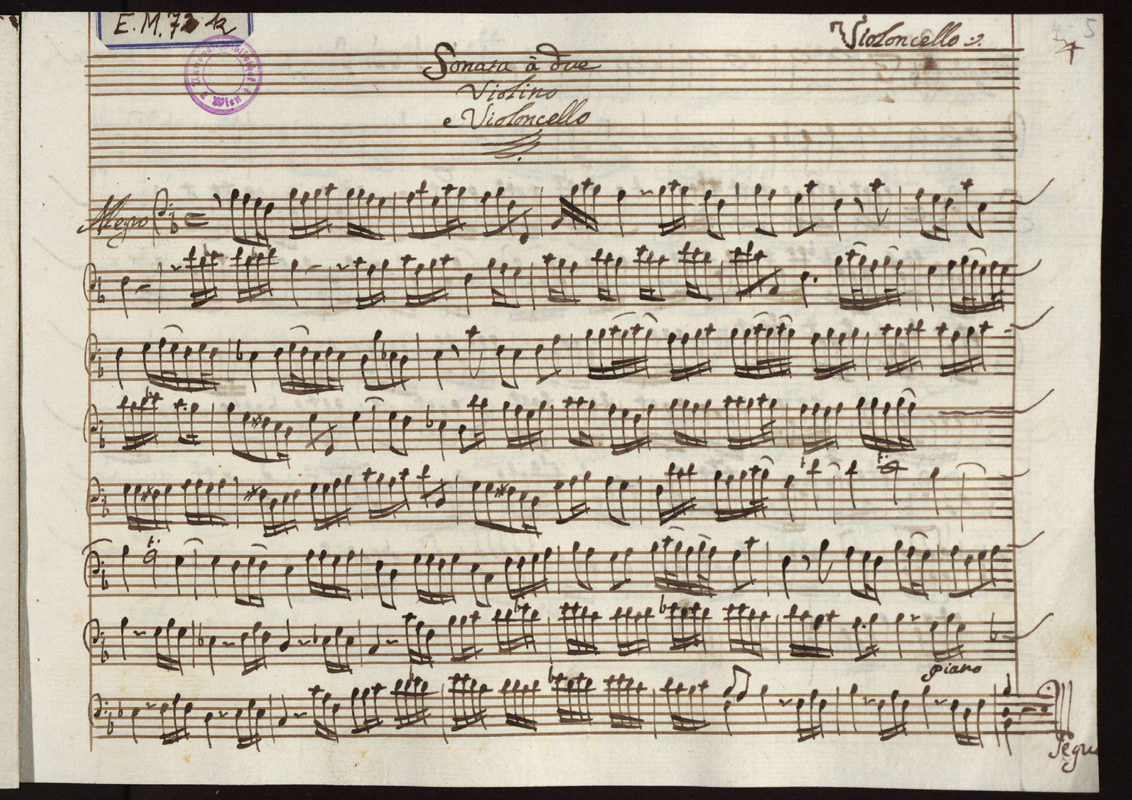 E.M. 72
Violoncello
5
Sonata à due
Violino
e Violoncello
Allegro
piano
Segue